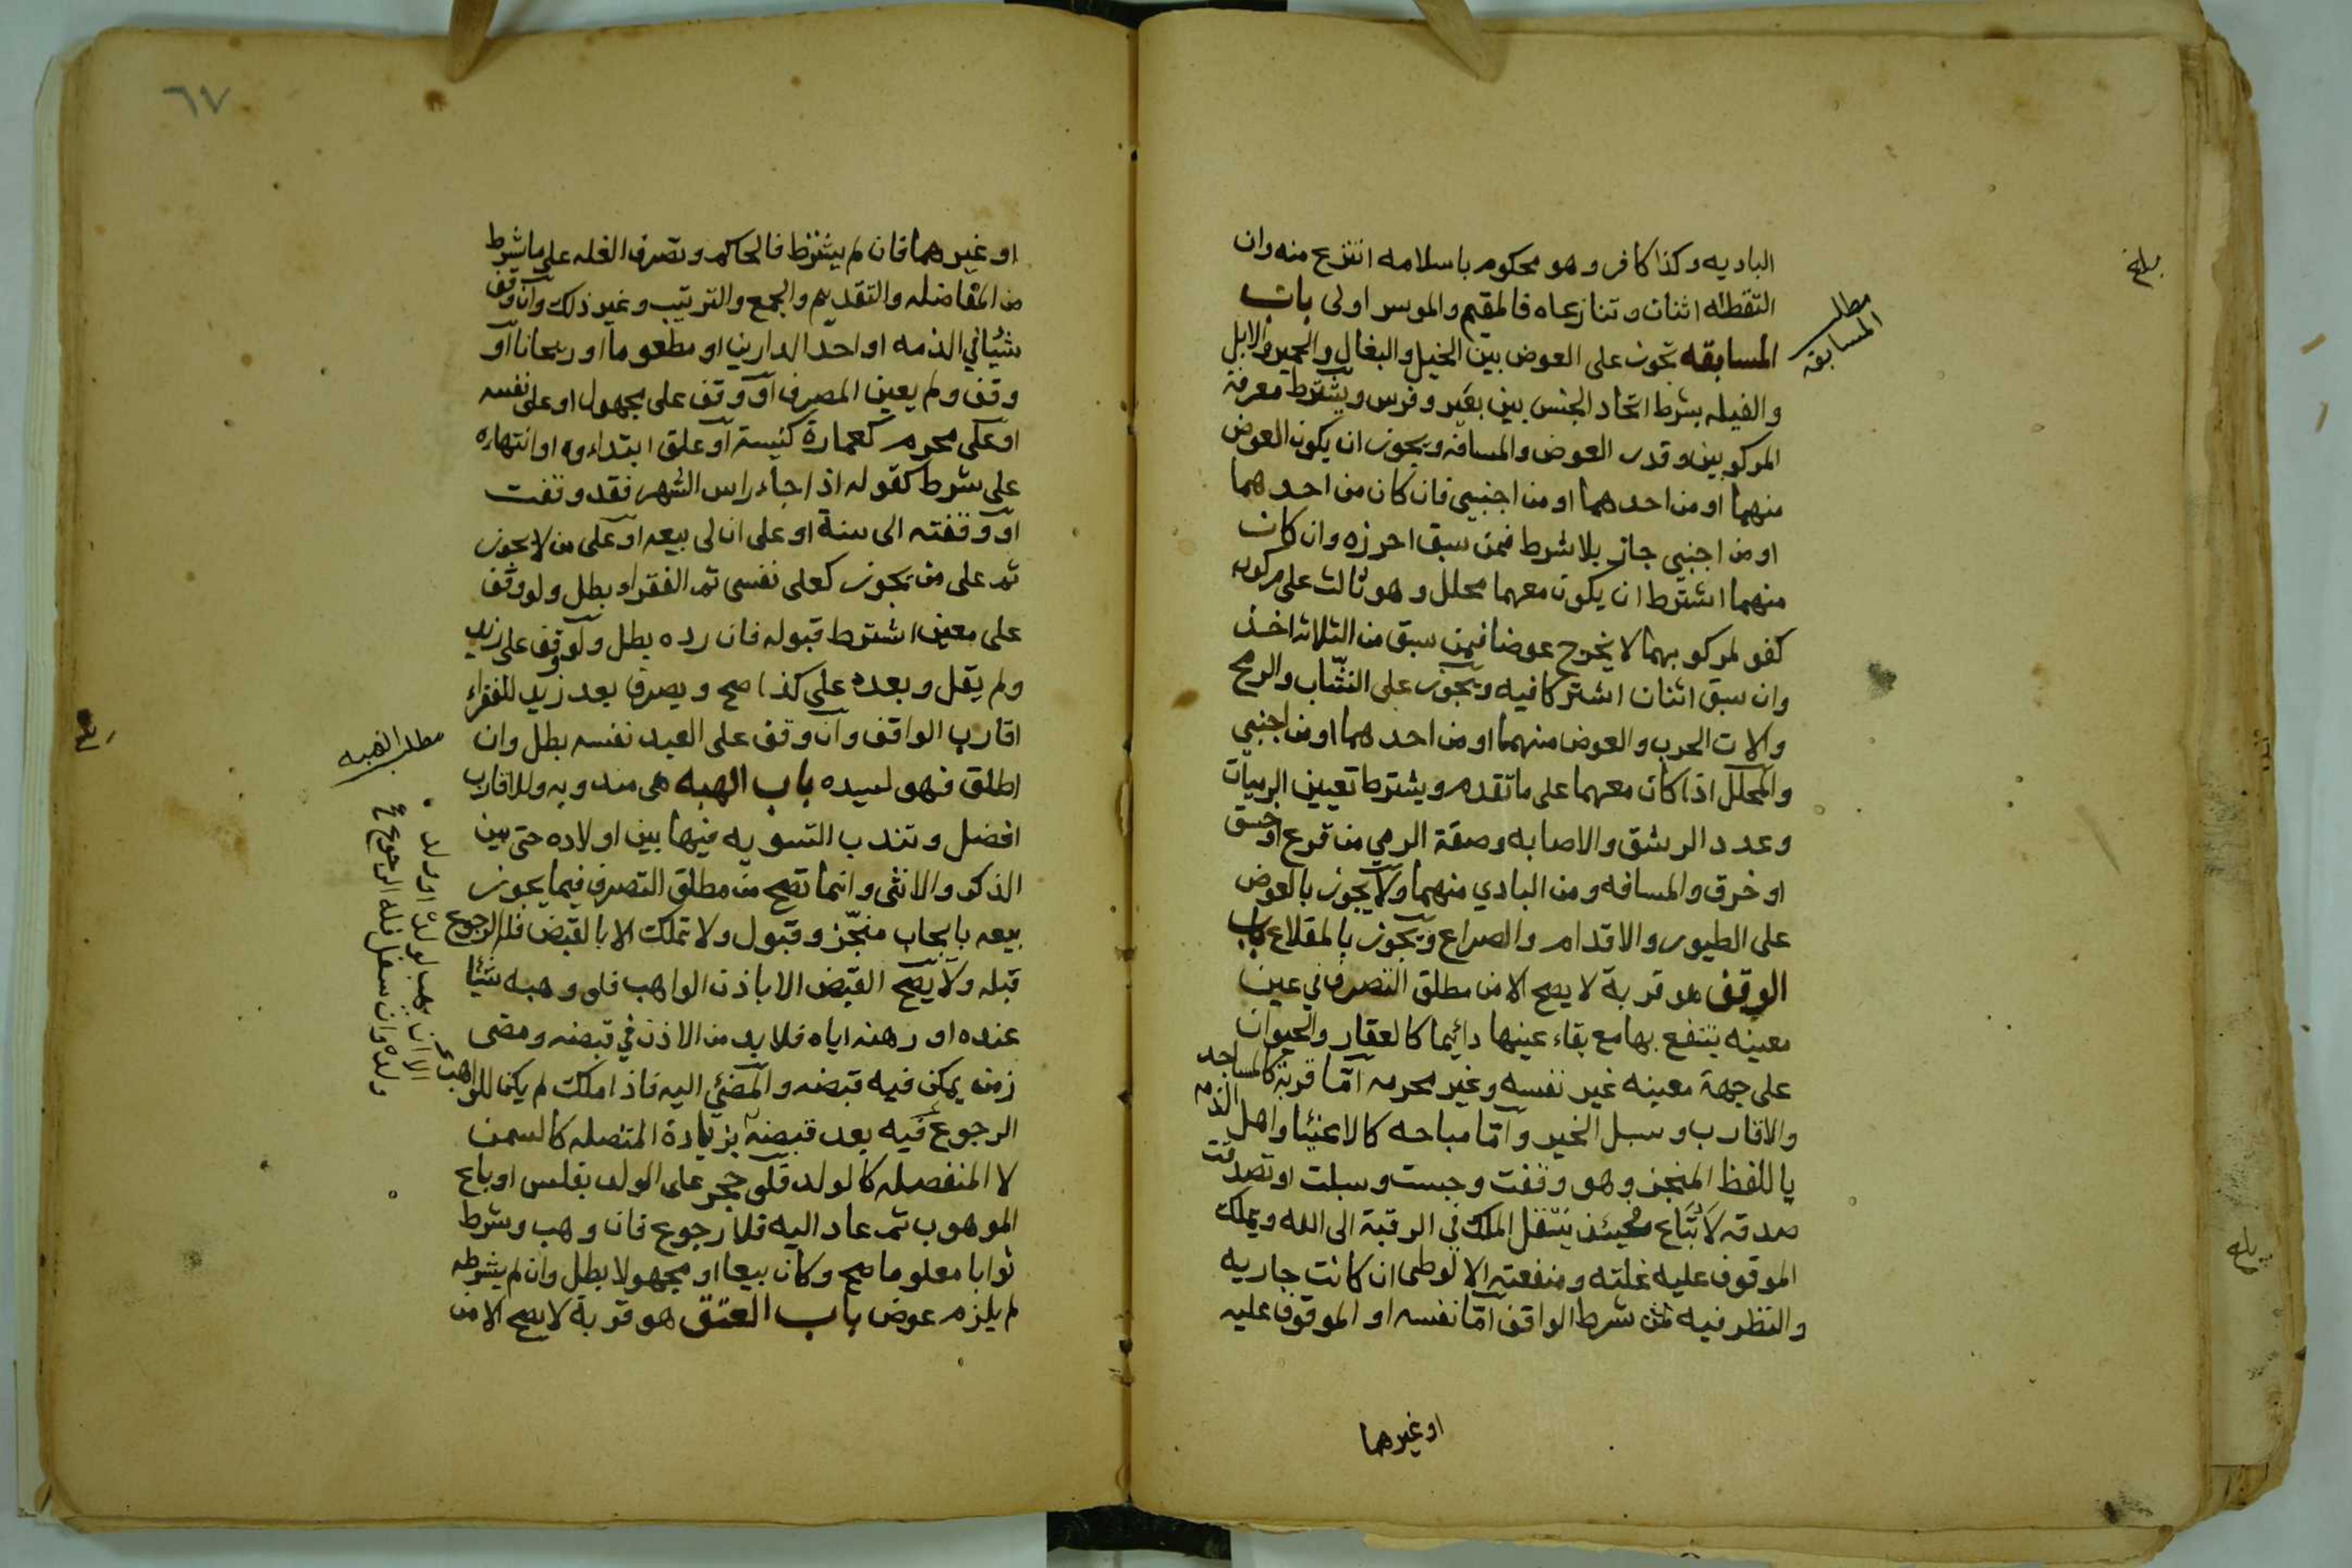 الباديه وكذا كافر وهو محكوم باسلامه انتزع منه وان
التقطه اثنان وتنازعاه فالمقيم والموسر اولى باب
المسابقه تجوز على العوض بين الخيل والبغال والحمير والابل
والفيله بشرط اتحاد الجنس بين بعير وفرس ويشترط معرفة
المركوبين وقدر العوض والمسافه ويجوز ان يكون العوض
منهما او من احدهما او من اجنبي فان كان من احدهما
او من اجنبي جاز بلا شرط فمن سبق احرزه وان كان
منهما اشترط ان يكون معهما محلل وهو ثالث على مركوب
كفو لمركوبهما لا يخرج عوضا فمن سبق من الثلاثه اخذ
وان سبق اثنان اشتركا فيه ويجوز على النشّاب والرمح
والات الحرب والعوض منهما او من احدهما او من اجنبي
والمحلل اذا كان معهما على ما تقدم ويشترط تعيين الرميات
وعدد الرشق والاصابه وصفة الرمي من قرع او خسق
او خرق والمسافه ومن البادي منهما ولا يجوز بالعوض
على الطيور والاقدام والصراع ويجوز بالمقلاع باب
الوقف هو قربة لا يصح الا من مطلق التصرف في عين
معينه ينتفع بها مع بقاء عينها دائيما كالعقار والحيوان
على جهة معينه غير نفسه وغير محرمه امّا قربة كالمساجد
والاقارب وسبل الخير وامّا مباحه كالاغنيا واهل الذمه
باللفظ المنجز وهو وقفت وحبست وسبلت او تصدقت
صدقه لا تباع فحينئذ ينتقل الملك في الرقبة الى الله ويملك
الموقوف عليه غلته ومنفعته الا لوطى ان كانت جاريه
والنظر فيه لمن شرط الواقف امّا نفسه او الموقوف عليه
او غيرهما
مطلب
المسابقة
بلغ
٦٧
او غيرهما فان لم يشترط فالحاكم وتصرف الغله على ما شرط
من المفاضله والتقديم والجمع والترتيب وغير ذلك وان وقف
شيئا في الذمه او احد الدارين او مطعوما او ريحانا او
وقف ولم يعين المصرف او وقف على مجهول او على نفسه
او على محرم كعمارة كنيسة او علق ابتداءه او انتهاءه
على شرط كقوله اذا جاء راس الشهر فقد وقفت
او وقفته الى سنة او على ان لي بيعه او على من لا يجوز
ثم على من يجوز كعلى نفسى ثم الفقراء بطل ولو وقف
على معين اشترط قبوله فان رده بطل ولو وقف على زيد
ولم يقل وبعده على كذا صح ويصرف بعد زيد للفقراء
اقارب الواقف وان وقف على العبد نفسه بطل وان
اطلق فهو لسيده باب الهبه هى مندوبه وللاقارب
افضل وتندب التسويه فيها بين اولاده حتى بين
الذكر والانثى وانما تصح من مطلق التصرف فيما يجوز
بيعه بايجاب منجّز وقبول ولا تملك الا بالقبض فله الرجوع
قبله ولا يصح القبض الا باذن الواهب فلو وهبه شيئا
عنده او رهنه اياه فلا بد من الاذن في قبضه ومضى
زمن يمكن فيه قبضه والمضى اليه فاذا ملكت لم يكن للواهب
الرجوع فيه بعد قبضه بزيادة المتصله كالسمن
لا المنفصله كالولد فلو حجر على الولد بفلس او باع
الموهوب ثم عاد اليه فلا رجوع فان وهب وشرط
ثوابا معلوما صح وكان بيعا او مجهولا بطل وان لم يشرطه
لم يلزم عوض باب العتق هو قربة لا يصح الا من
مطلب الهبه
الا ان يهب لولده او ولد
ولده وان سفل فله الرجوع